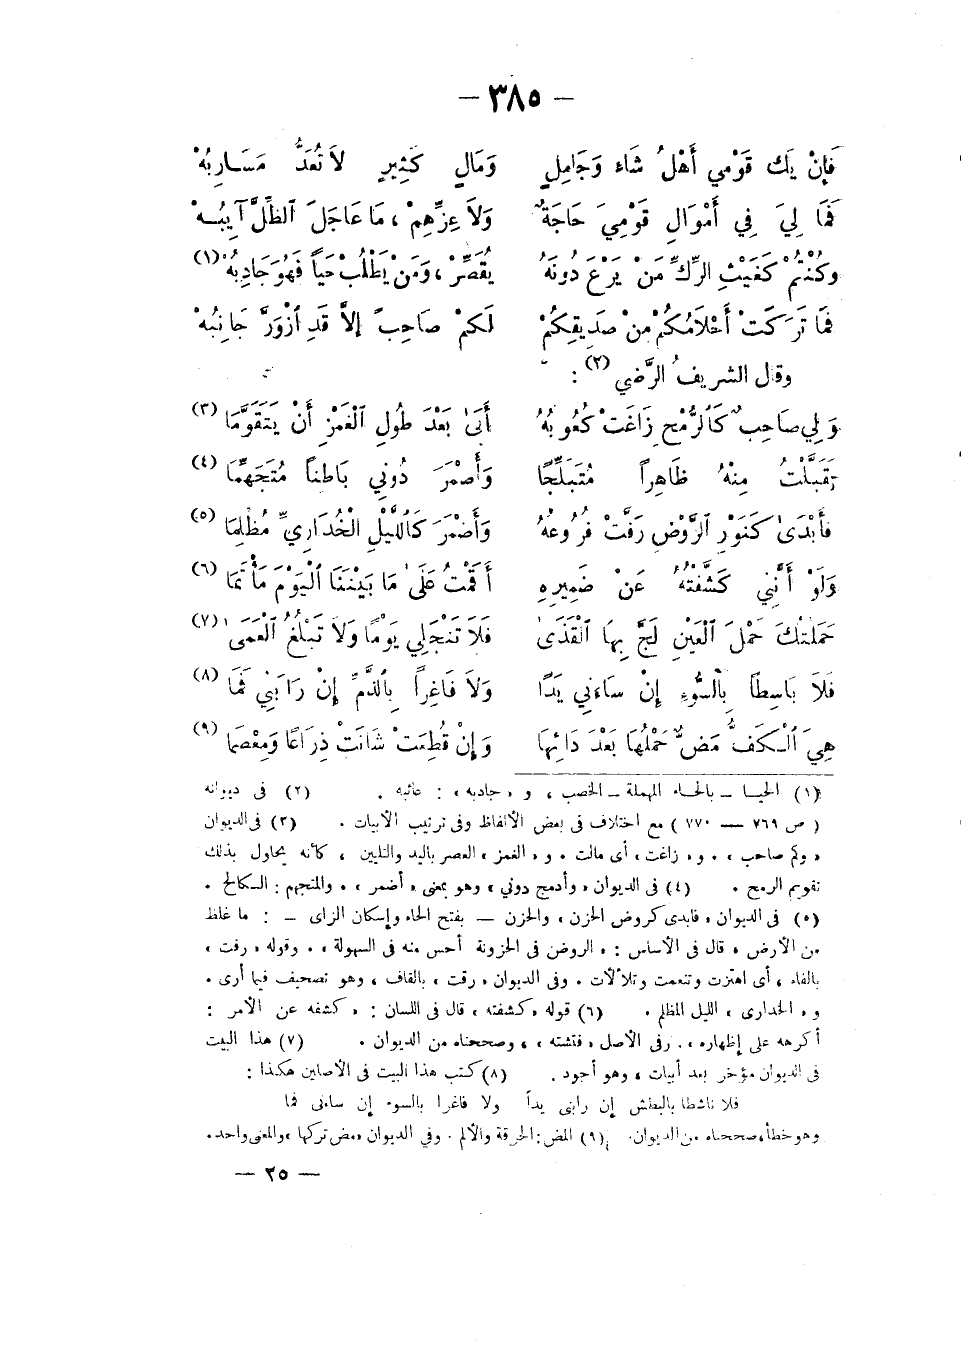 — ٣٨٥ —
فَإِنْ يَكُ قَوْمِي أَهْلُ شَاءٍ وَجَامِلٍ وَمَالٍ كَثِيرٍ لاَ تُعَدُّ مَسَارِبُهْ
فَمَا لِيَ فِي أَمْوَالِ قَوْمِيَ حَاجَةٌ وَلاَ عِزِّهِمْ ، مَا عَاجَلَ ٱلظِّلَّ آيِبُهْ
وكُنْتُمْ كَغَيْثِ الرِّكِّ مَنْ يَرْعَ دُونَهُ يُقَصِّرْ ، وَمَنْ يَطْلُبْ حَياً فَهْوَ جَادِبُهْ (١)
فَمَا تَرَكَتْ أَحْلاَمُكُمْ مِنْ صَدِيقِكُمْ لَكمْ صَاحِباً إلاَّ قَدِ ٱزْوَرَّ جَانِبُهْ
وقال الشريفُ الرَّضي (٢) :
وَلِي صَاحِبٌ كَٱلرُّمْحِ زَاغَتْ كُعُوبُهُ أَبَىٰ بَعْدَ طُولِ ٱلْغَمْزِ أَنْ يَتَقَوَّمَا (٣)
تَقَبَّلْتُ مِنْهُ ظَاهِراً مُتَبَلِّجًا وَأَضْمَرَ دُونِي بَاطِناً مُتَجَهِّمَا (٤)
فأَبْدَىٰ كَنَوْرِ ٱلرَّوْضِ رَفَّتْ فُرُوعُهُ وَأَضْمَرَ كَاللَّيْلِ الْخُدَارِيِّ مُظْلِمَا (٥)
وَلَوْ أَنَّنِي كَشَّفْتُهُ عَنْ ضَمِيرِهِ أَقَمْتُ عَلَىٰ مَا بَيْنَنَا ٱلْيَوْمَ مَأْتَمَا (٦)
حَمَلتُكَ حَمْلَ ٱلْعَيْنِ لَجَّ بِهَا ٱلْقَذَىٰ فَلاَ تَنْجَلِي يَوْمًا وَلاَ تَبْلُغُ ٱلْعَمَىٰ (٧)
فَلاَ بَاسِطاً بِالْسُّوءِ إِنْ سَاءَنِي يَدًا وَلاَ فَاغِراً بِٱلذَّمِّ إِنْ رَابَنِي فَمَا (٨)
هِيَ ٱلْكَفُّ مَضٌّ حَمْلُهَا بَعْدَ دَائِهَا وَإِنْ قُطِعَتْ شَانَتْ ذِرَاعًا وَمِعْصَمَا (٩)
(١) الحيا – بالحاء المهملة – الخصب ، و « جادبه » : عائبه . (٢) فى ديوانه
( ص ٧٦٩ — ٧٧٠ ) مع اختلاف فى بعض الألفاظ وفى ترتيب الأبيات . (٣) فى الديوان
« وكم صاحب » . و « زاغت » أى مالت . و « الغمز » العصر باليد والتليين ، كأنه يحاول بذلك
تقويم الرمح . (٤) فى الديوان « وأدمج دوني » وهو بمعنى « أضمر » . والمتجهم : الكالح .
(٥) فى الديوان « فابدى كروض الحزن » والحزن — بفتح الحاء وإسكان الزاى – : ما غلظ
من الأرض ، قال فى الأساس : « الروض فى الحزونة أحسن منه فى السهولة » . وقوله « رفت »
بالفاء ، أى اهتزت وتنعمت وتلألأت . وفى الديوان « رقت » بالقاف ، وهو تصحيف فيما أرى .
و « الخدارى » الليل المظلم . (٦) قوله « كشفته » قال فى اللسان : « كشفه عن الأمر :
أكرهه على إظهاره » . وفى الأصل « فتشته » ، وصححناه من الديوان . (٧) هذا البيت
فى الديوان مؤخر بعد أبيات ، وهو أجود . (٨) كتب هذا البيت فى الأصلين هكذا :
فلا ناشطا بالبطش إن رابى يداً ولا فاغرا بالسوء إن ساءنى فما
وهو خطأ ، صححناه من الديوان . (٩) المض : الحرقة والألم . وفي الديوان « مض تركها » والمعنى واحد .
— ٢٥ —